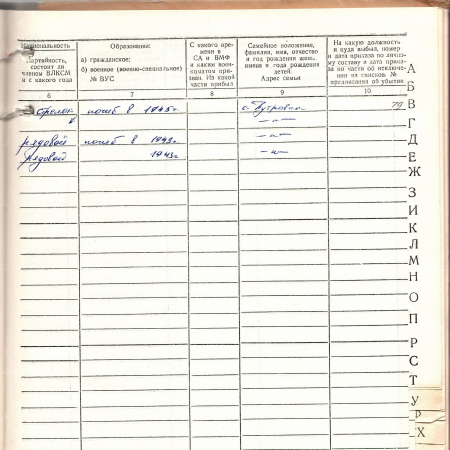 Национальность
Партийность,
состоит ли
членом ВЛКСМ
и с какого года
Образование:
а) гражданское;
б) военное (военно-специальное)
№ ВУС
С какого вре-
мени в
СА и ВМФ
и каким воен-
коматом при-
зван. Из какой
части прибыл
Семейное положение,
фамилия, имя, отчество
и год рождения жены,
имена и года рождения
детей.
Адрес семьи
На какую должность
и куда выбыл, номер
и дата приказа по лично-
му составу и дата прика-
за по части об исключе-
нии из списков. №
предписания об убытии
6 7 8 9 10
стрелок погиб в 1945г. с. Петровка 79
— „ —
рядовой погиб в 1943г — „ —
рядовой 1943г — „ —
А
Б
В
Г
Д
Е
Ж
З
И
К
Л
М
Н
О
П
Р
С
Т
У
Р
Х